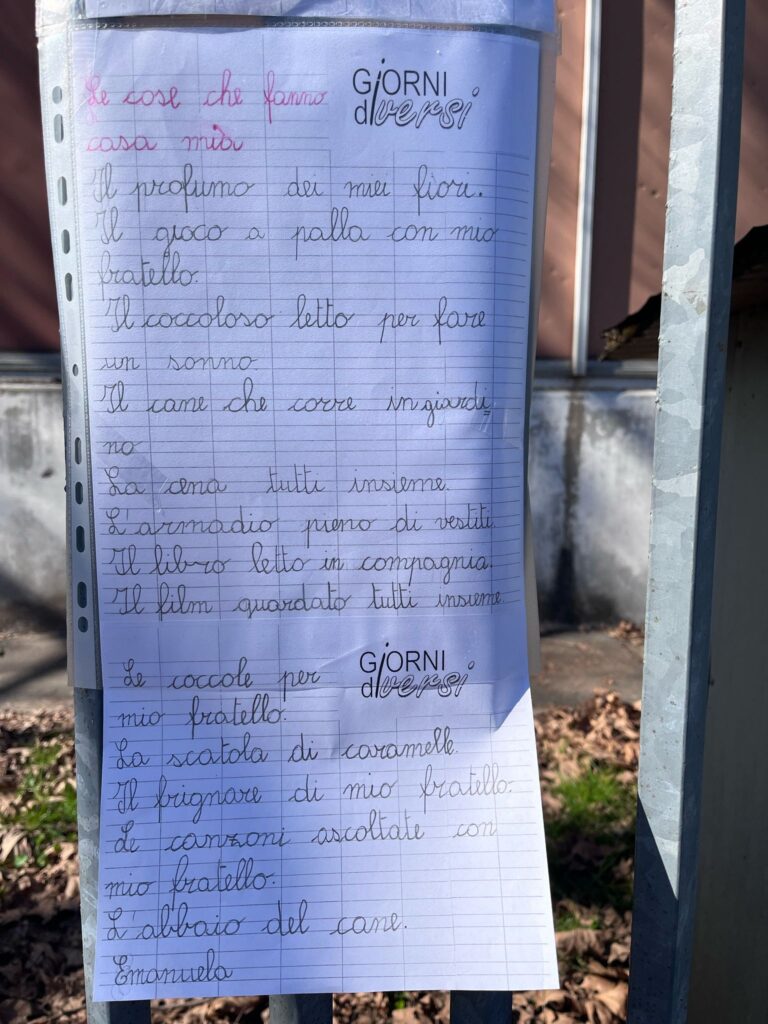 Le cose che fanno
casa mia
GiORNI
diversi
Il profumo dei miei fiori.
Il gioco a palla con mio
fratello.
Il coccoloso letto per fare
un sonno.
Il cane che corre in giardi=
no
La cena tutti insieme.
L'armadio pieno di vestiti.
Il libro letto in compagnia.
Il film guardato tutti insieme.
Le coccole per
mio fratello.
GiORNI
diversi
La scatola di caramelle.
Il frignare di mio fratello.
Le canzoni ascoltate con
mio fratello.
L'abbaio del cane.
Emanuela